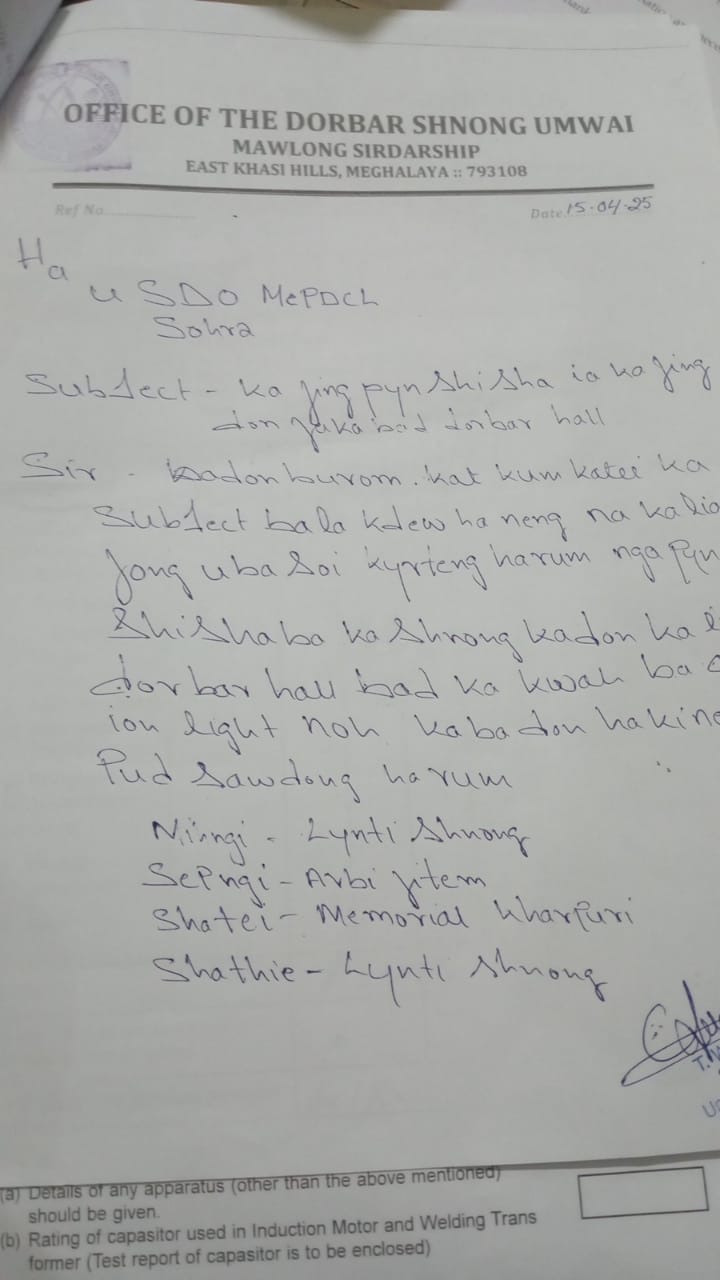 OFFICE OF THE DORBAR SHNONG UMWAI
MAWLONG SIRDARSHIP
EAST KHASI HILLS, MEGHALAYA :: 793108
Ref No.............. Date 15-04-25
Ha
u SDO MePDCL
Sohra
Subject - ka Jing pyn Shisha ia ka Jing
don jaka bad dorbar hall
Sir - kadon burom. kat kum katei ka
Subject ba la kdew ha neng na ka lia
Jong uba Soi kyrteng harum nga Pyn
Shisha ba ka Shnong kadon ka
dorbar hall bad ka kwah ba
ion light noh kaba don ha kine
Pud Sawdong harum
Mihngi - Lynti Shnong
SePngi - Arbi Jitem
Shatei - Memorial Kharpuri
Shathie - Lynti Shnong
(a) Details of any apparatus (other than the above mentioned)
should be given.
(b) Rating of capasitor used in Induction Motor and Welding Trans
former (Test report of capasitor is to be enclosed)